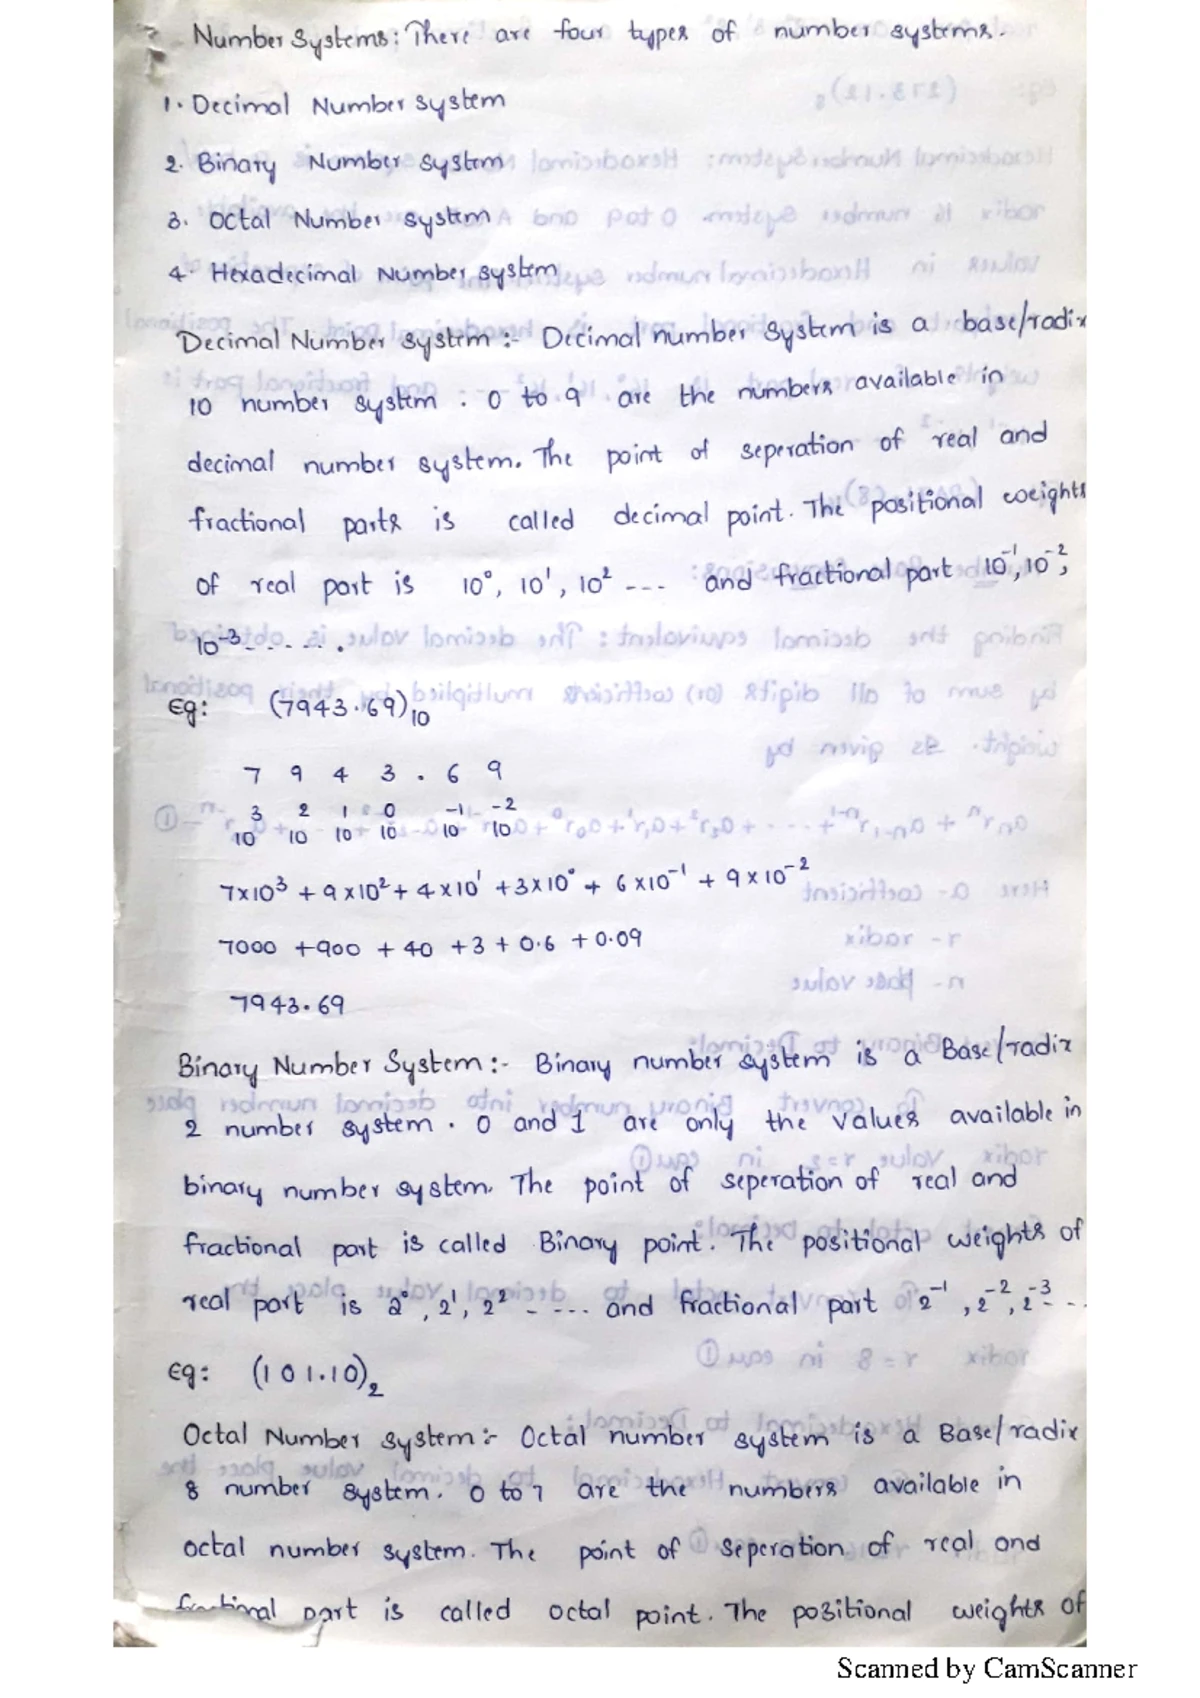 Number Systems: There are four types of number systems.
1. Decimal Number system
2. Binary Number system
3. Octal Number system
4. Hexadecimal Number system
Decimal Number system :- Decimal number system is a base/radix
10 number system. 0 to 9 are the numbers available in
decimal number system. The point of seperation of real and
fractional parts is called decimal point. The positional weights
of real part is 10⁰, 10¹, 10² --- and fractional part 10⁻¹, 10⁻²,
10⁻³ - - - - - .
Eg: (7943.69)₁₀
7 9 4 3 . 6 9
10³ 10² 10¹ 10⁰ 10⁻¹ 10⁻²
7x10³ + 9x10² + 4x10¹ + 3x10⁰ + 6x10⁻¹ + 9x10⁻²
7000 + 900 + 40 + 3 + 0.6 + 0.09
7943.69
Binary Number System :- Binary number system is a Base/radix
2 number system. 0 and 1 are only the values available in
binary number system. The point of seperation of real and
fractional part is called Binary point. The positional weights of
real part is 2⁰, 2¹, 2² - --- and fractional part 2⁻¹, 2⁻², 2⁻³ - - -
Eg: (101.10)₂
Octal Number system :- Octal number system is a Base/radix
8 number system. 0 to 7 are the numbers available in
octal number system. The point of seperation of real and
fractional part is called octal point. The positional weights of
Scanned by CamScanner